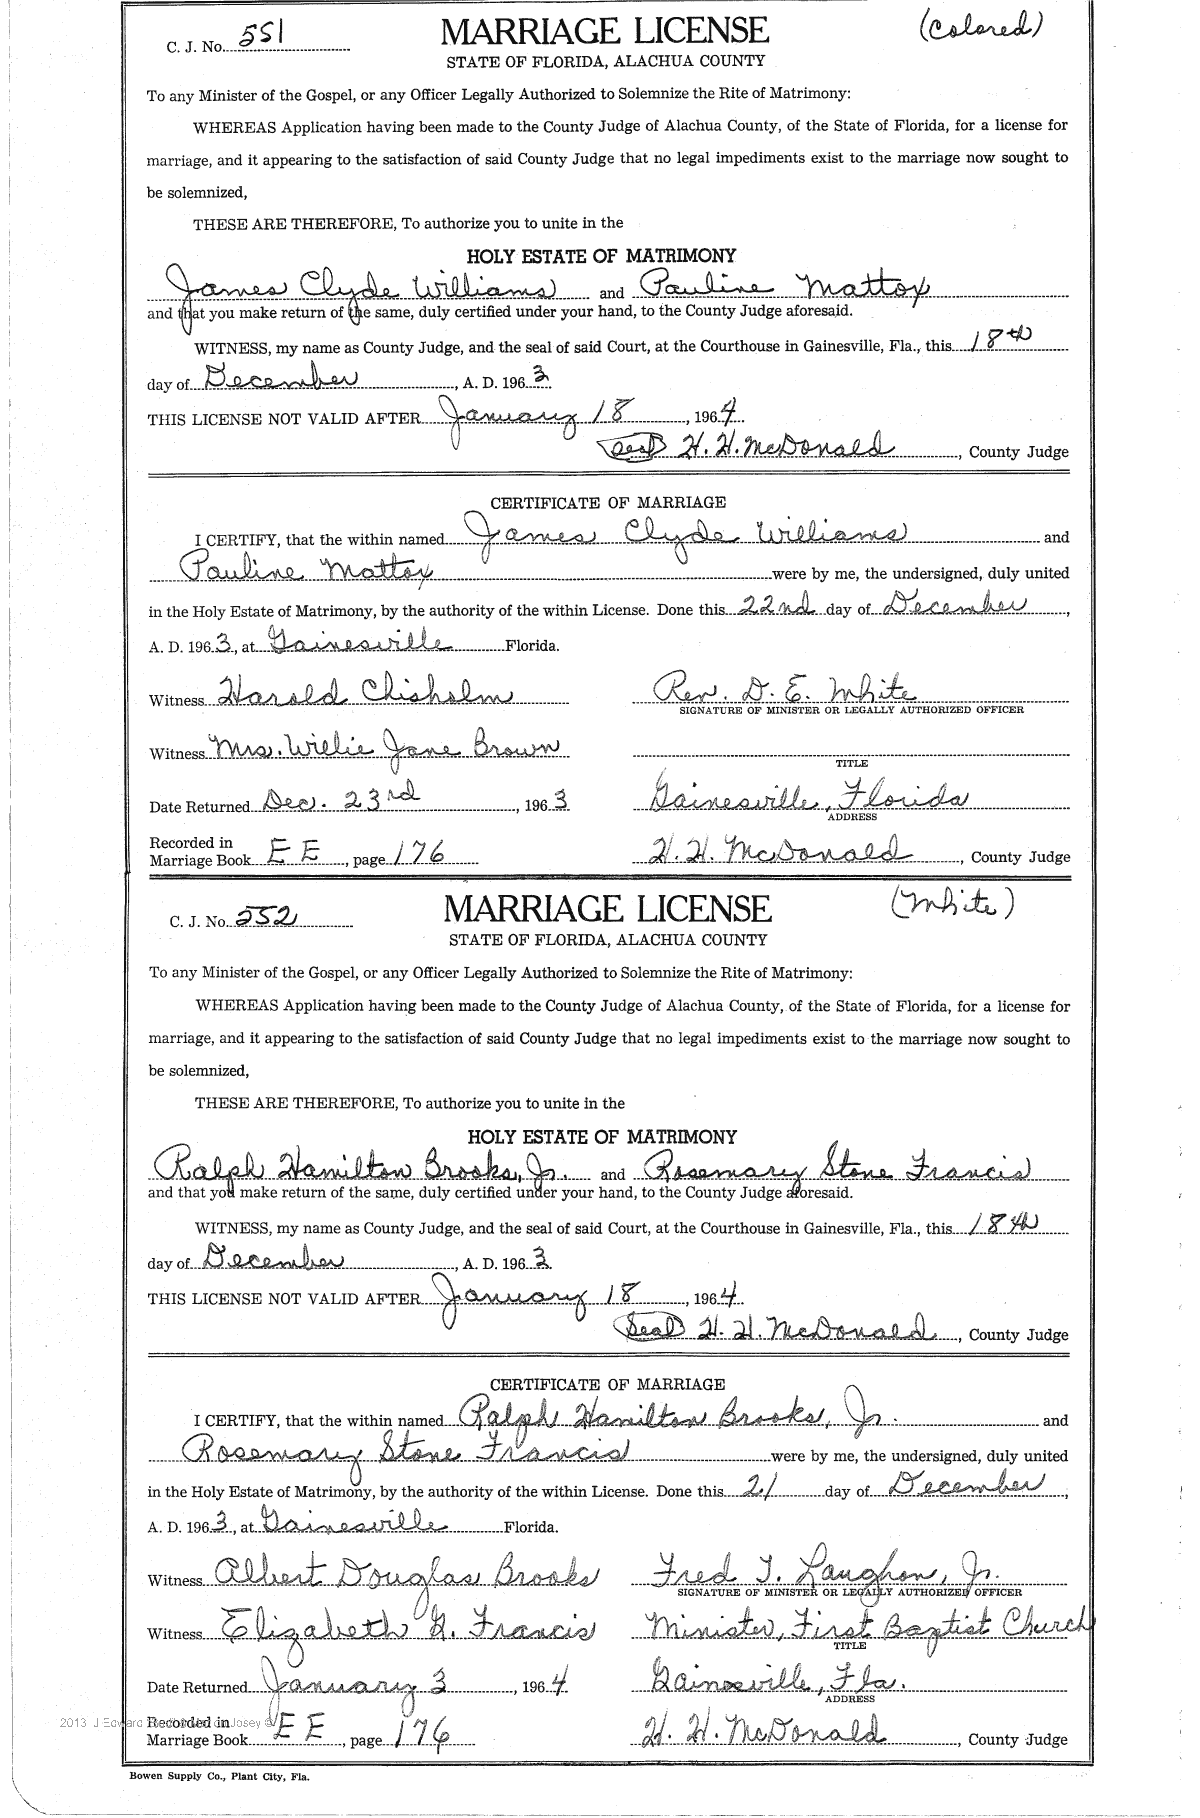 C. J. No. 551 MARRIAGE LICENSE (Colored)
STATE OF FLORIDA, ALACHUA COUNTY
To any Minister of the Gospel, or any Officer Legally Authorized to Solemnize the Rite of Matrimony:
WHEREAS Application having been made to the County Judge of Alachua County, of the State of Florida, for a license for
marriage, and it appearing to the satisfaction of said County Judge that no legal impediments exist to the marriage now sought to
be solemnized,
THESE ARE THEREFORE, To authorize you to unite in the
HOLY ESTATE OF MATRIMONY
James Clyde Williams and Pauline Mattox
and that you make return of the same, duly certified under your hand, to the County Judge aforesaid.
WITNESS, my name as County Judge, and the seal of said Court, at the Courthouse in Gainesville, Fla., this 18th
day of December, A. D. 1963
THIS LICENSE NOT VALID AFTER January 18, 1964
Seal H. H. McDonald, County Judge
CERTIFICATE OF MARRIAGE
I CERTIFY, that the within named James Clyde Williams and
Pauline Mattox were by me, the undersigned, duly united
in the Holy Estate of Matrimony, by the authority of the within License. Done this 22nd day of December,
A. D. 1963, at Gainesville Florida.
Witness Harold Chisholm Rev. D. E. White
SIGNATURE OF MINISTER OR LEGALLY AUTHORIZED OFFICER
Witness Mrs. Willie Jane Brown
TITLE
Date Returned Dec. 23rd, 1963 Gainesville, Florida
ADDRESS
Recorded in
Marriage Book EE, page 176 H. H. McDonald, County Judge
C. J. No. 552 MARRIAGE LICENSE (White)
STATE OF FLORIDA, ALACHUA COUNTY
To any Minister of the Gospel, or any Officer Legally Authorized to Solemnize the Rite of Matrimony:
WHEREAS Application having been made to the County Judge of Alachua County, of the State of Florida, for a license for
marriage, and it appearing to the satisfaction of said County Judge that no legal impediments exist to the marriage now sought to
be solemnized,
THESE ARE THEREFORE, To authorize you to unite in the
HOLY ESTATE OF MATRIMONY
Ralph Hamilton Brooks, Jr. and Rosemary Stone Francis
and that you make return of the same, duly certified under your hand, to the County Judge aforesaid.
WITNESS, my name as County Judge, and the seal of said Court, at the Courthouse in Gainesville, Fla., this 18th
day of December, A. D. 1963
THIS LICENSE NOT VALID AFTER January 18, 1964
Seal H. H. McDonald, County Judge
CERTIFICATE OF MARRIAGE
I CERTIFY, that the within named Ralph Hamilton Brooks, Jr. and
Rosemary Stone Francis were by me, the undersigned, duly united
in the Holy Estate of Matrimony, by the authority of the within License. Done this 21 day of December,
A. D. 1963, at Gainesville Florida.
Witness Albert Douglas Brooks Fred T. Laughon, Jr.
SIGNATURE OF MINISTER OR LEGALLY AUTHORIZED OFFICER
Witness Elizabeth G. Francis Minister, First Baptist Church
TITLE
Date Returned January 3, 1964 Gainesville, Fla.
ADDRESS
2013 J Edward Josey ©
Recorded in
Marriage Book EE, page 176 H. H. McDonald, County Judge
Bowen Supply Co., Plant City, Fla.